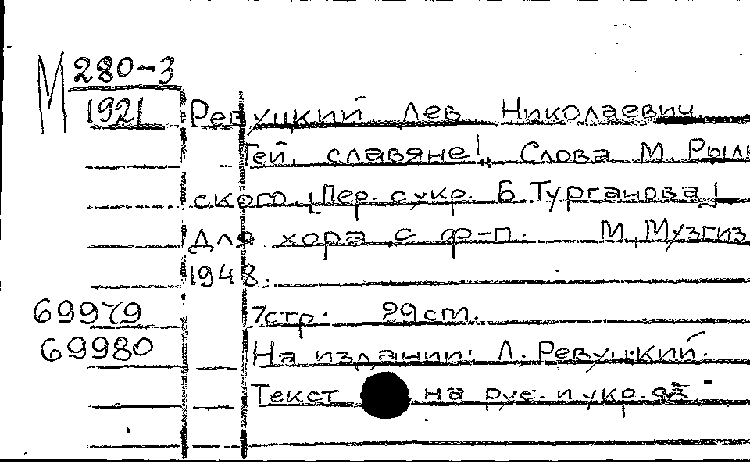 М 280-3
1921 Ревуцкий Лев Николаевич
Гей, славяне!, Слова М. Рыль
ского. [Пер. с укр. Б. Турганова]
Для хора с ф-п. М, Музгиз
1948.
69979 7стр. 29 cm.
69980 На издании: Л. Ревуцкий.
Текст на рус. и укр. яз